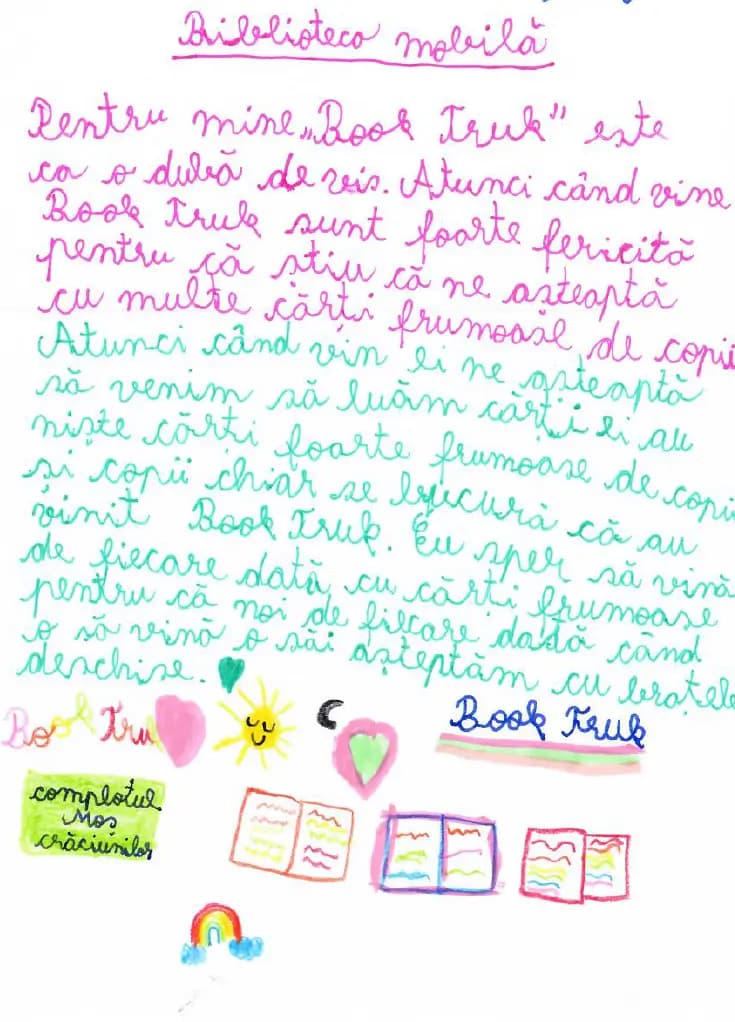 Biblioteca mobilă
Pentru mine „Book Truk" este
ca o dubă de vis. Atunci când vine
Book Truk sunt foarte fericită
pentru că știu că ne așteaptă
cu multe cărți frumoase de copii
Atunci când vin ei ne așteaptă
să venim să luăm cărți ei au
niște cărți foarte frumoase de copii
și copii chiar se bucură că au
vinit Book Truk. Eu sper să vină
de fiecare dată cu cărți frumoase
pentru că noi de fiecare dată când
o să vină o săi așteptăm cu brațele
deschise.
Book Truk
Book Truk
complotul
Moș
crăciunilor